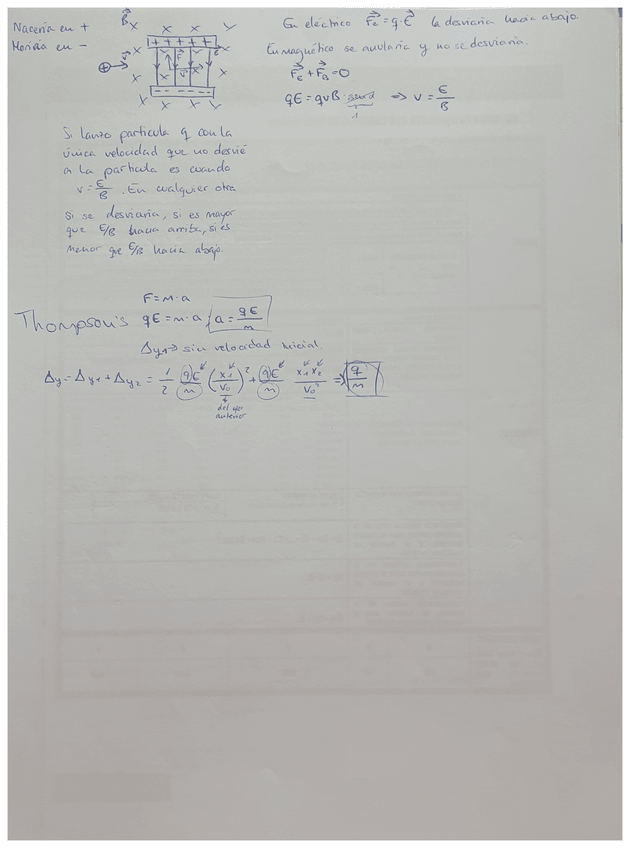 Nacería en +
Moriría en -
B
En eléctrico Fe = q·E la desviaría hacia abajo.
En magnético se anularía y no se desviaría.
FE + FB = 0
qE = qvB · senα => v = E/B
1
Si lanzo partícula q con la
única velocidad que no desvíe
a la partícula es cuando
v = E/B. En cualquier otra
si se desviaría, si es mayor
que E/B hacia arriba, si es
menor que E/B hacia abajo.
F = m·a
Thompson's qE = m·a, a = qE/m
Δy1 → sin velocidad inicial
Δy = Δy1 + Δy2 = 1/2 qE/m (x1/v0)² + qE/m x1x2/v0² => q/m
del ejer
anterior